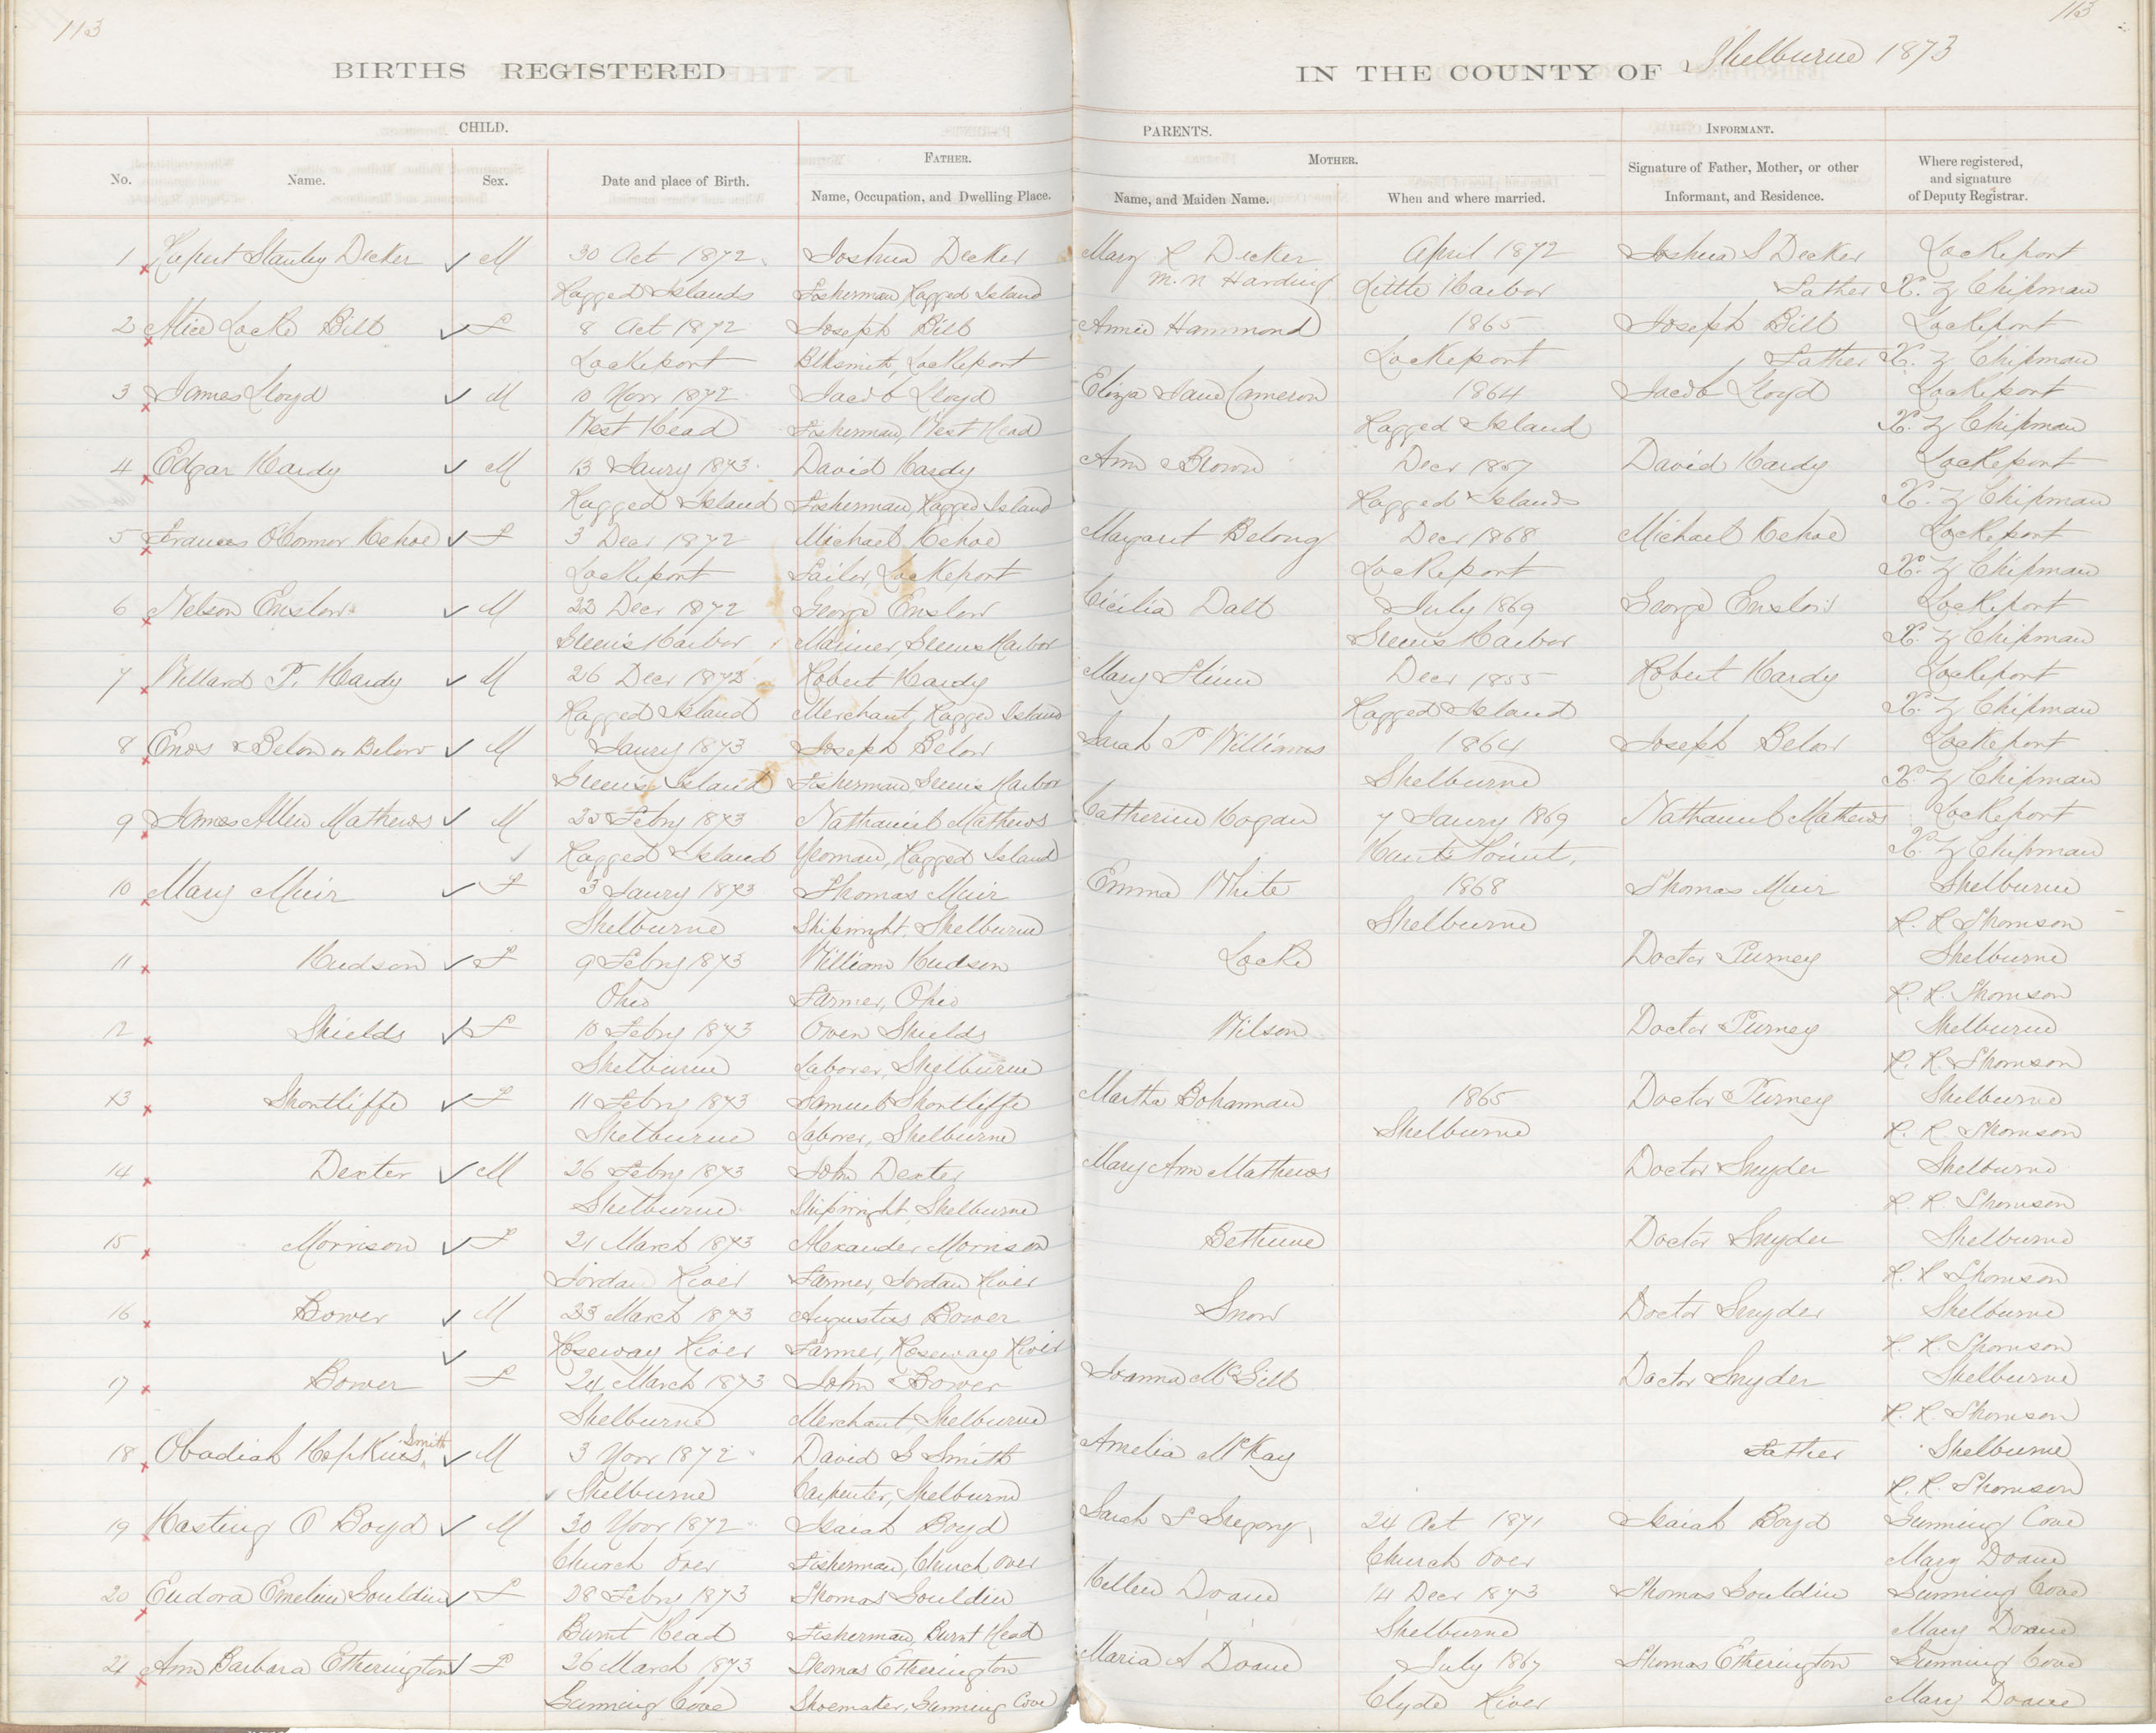 113
113
BIRTHS REGISTERED
IN THE COUNTY OF Shelburne 1873
CHILD.
PARENTS.
INFORMANT.
FATHER.
MOTHER.
No.
Name.
Sex.
Date and place of Birth.
Name, Occupation, and Dwelling Place.
Name, and Maiden Name.
When and where married.
Signature of Father, Mother, or other
Informant, and Residence.
Where registered,
and signature
of Deputy Registrar.
1 Rupert Stanley Decker M 30 Oct 1872 Joshua Decker Mary R Decker April 1872 Joshua S Decker Lockeport
Ragged Islands Fisherman, Ragged Island M. N Harding Little Harbor Father Chipman
2 Alice Locke Bill F 8 Oct 1872 Joseph Bill Annie Hammond 1865 Joseph Bill Lockeport
Lockeport Blksmith, Lockeport Lockeport Father Chipman
3 James Lloyd M 10 Novr 1872 Jacob Lloyd Eliza Jane Cameron 1864 Jacob Lloyd Lockeport
West Head Fisherman, West Head Ragged Island Chipman
4 Edgar Hardy M 13 Jaury 1873 David Hardy Ann Brown Decr 1857 David Hardy Lockeport
Ragged Island Fisherman, Ragged Island Ragged Islands Chipman
5 Frances OConnor Kehoe F 3 Decr 1872 Michael Kehoe Margaret Belong Decr 1868 Michael Kehoe Lockeport
Lockeport Sailor, Lockeport Lockeport Chipman
6 Nelson Enslow M 22 Decr 1872 George Enslow Cicilia Dall July 1869 George Enslow Lockeport
Green's Harbor Mariner, Greens Harbor Greens Harbor Chipman
7 Willard P. Hardy M 26 Decr 1872 Robert Hardy Mary Decr 1855 Robert Hardy Lockeport
Ragged Island Merchant, Ragged Island Ragged Island Chipman
8 Enos Belon or Below M Jaury 1873 Joseph Below Sarah P Williams 1864 Joseph Below Lockeport
Green's Island Fisherman Greens Harbor Shelburne Chipman
9 James Allen Mathews M Febry 1873 Nathaniel Mathews Catherine Hogan 7 Jaury 1869 Nathaniel Mathews Lockeport
Ragged Island Yeoman, Ragged Island Point. Chipman
10 Mary Muir F 3 Jaury 1873 Thomas Muir Emma White 1868 Thomas Muir Shelburne
Shelburne Shipwright, Shelburne Shelburne R. R Thomson
11 Hudson F 9 Febry 1873 William Hudson Locke Doctor Purney Shelburne
Ohio Farmer, Ohio R. R. Thomson
12 Shields F 10 Febry 1873 Owen Shields Wilson Doctor Purney Shelburne
Shelburne Laborer, Shelburne R. R. Thomson
13 Shortliffe F 11 Febry 1873 Samuel Shortliffe Martha Bohannan 1865 Doctor Purney Shelburne
Shelburne Laborer, Shelburne Shelburne R. R Thomson
14 Dexter M 26 Febry 1873 John Dexter Mary Ann Mathews Doctor Snyder Shelburne
Shelburne Shipwright, Shelburne R. R. Thomson
15 Morrison F 21 March 1873 Alexander Morrison Bethune Doctor Snyder Shelburne
Jordan River Farmer, Jordan River R. R Thomson
16 Bower M 23 March 1873 Augustus Bower Snow Doctor Snyder Shelburne
Roseway River Farmer, Roseway River R. R. Thomson
17 Bower F 24 March 1873 John Bower Joanna McGill Doctor Snyder Shelburne
Shelburne Merchant, Shelburne R. R. Thomson
18 Obadiah Hopkins Smith M 3 Novr 1872 David S Smith Amelia McKay Father Shelburne
Shelburne Carpenter, Shelburne R. R. Thomson
19 Hasting O Boyd M 30 Novr 1872 Isaiah Boyd Sarah F Gregory 24 Oct 1871 Isaiah Boyd Gunning Cove
Church Over Fisherman, Church Over Church Over Mary Doane
20 Eudora Emeline Gouldin F 28 Febry 1873 Thomas Gouldin Hellen Doane 14 Decr 1873 Thomas Gouldin Gunning Cove
Burnt Head Fisherman, Burnt Head Shelburne Mary Doane
21 Ann Barbara Etherington F 26 March 1873 Thomas Etherington Maria A Doane July 1867 Thomas Etherington Gunning Cove
Gunning Cove Shoemaker, Gunning Cove Clyde River Mary Doane